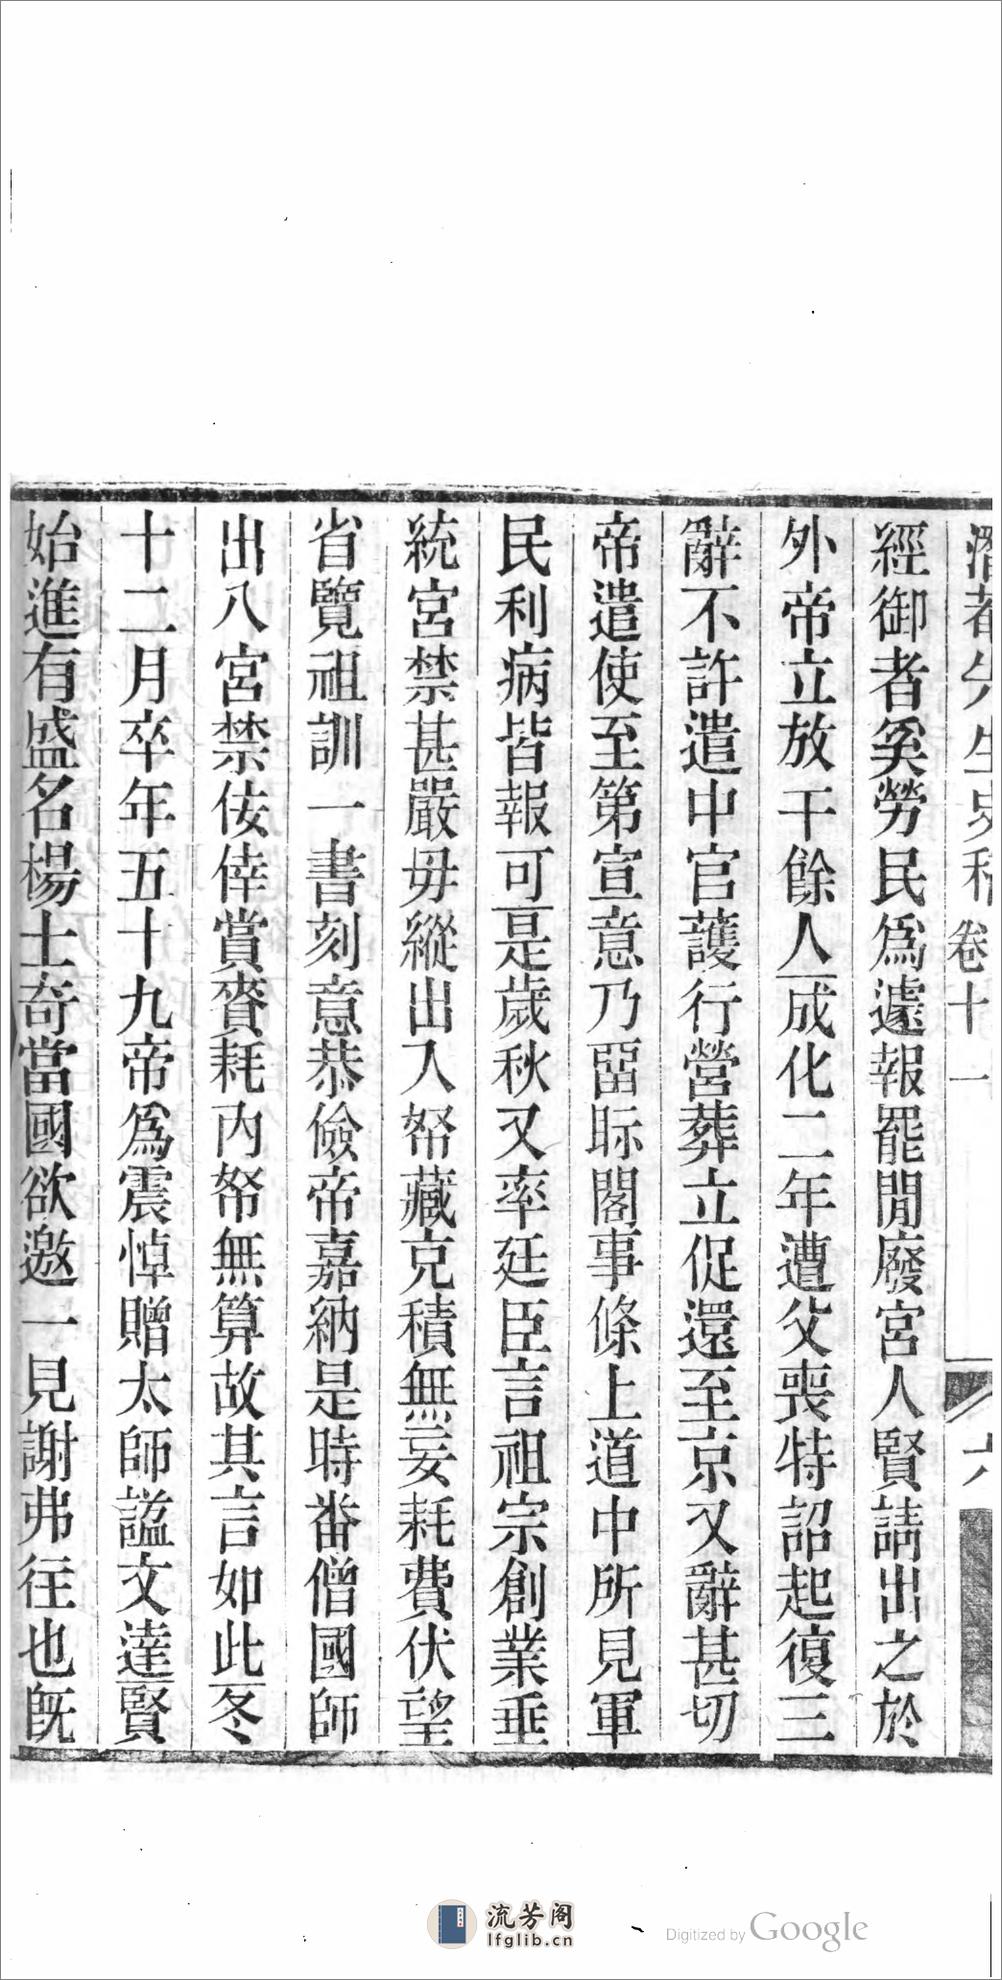 潛菴先生史稿 卷十一 六
經御者奚勞民爲遽報罷閒廢宮人賢請出之於
外帝立放千餘人成化二年遭父喪特詔起復三
辭不許遣中官護行營葬立促還至京又辭甚切
帝遣使至第宣意乃留眎閣事條上道中所見軍
民利病皆報可是歲秋又率廷臣言祖宗創業垂
統宮禁甚嚴毋縱出入帑藏充積無妄耗費伏望
省覽祖訓一書刻意恭儉帝嘉納是時番僧國師
出入宮禁佞倖賞賚耗內帑無算故其言如此冬
十二月卒年五十九帝爲震悼贈太師諡文達賢
始進有盛名楊士奇當國欲邀一見謝弗往也既
流芳阁
lfglib.cn
Digitized by Google